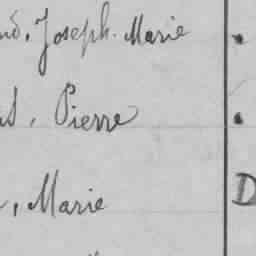 nd, Joseph. Marie
d, Pierre
, Marie D